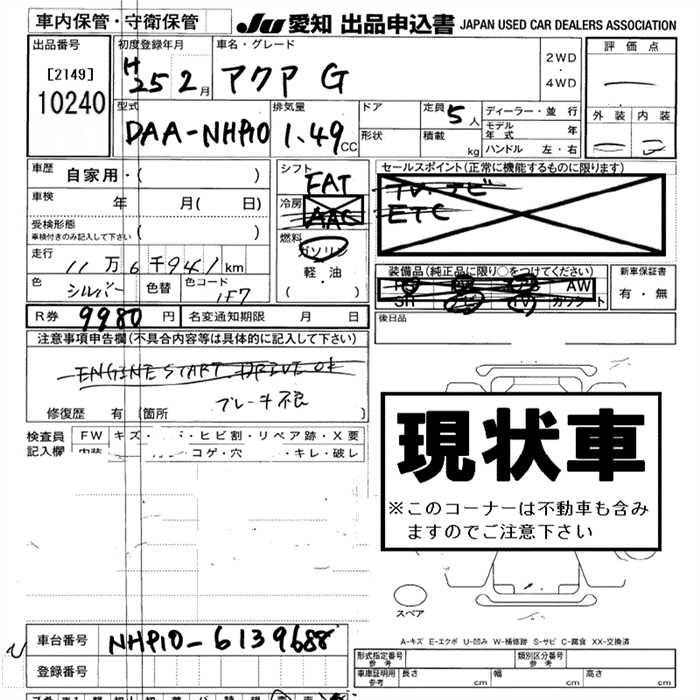 車内保管・守衛保管
JU 愛知 出品申込書 JAPAN USED CAR DEALERS ASSOCIATION
出品番号
[2149]
10240
初度登録年月
H25 2月
車名・グレード
アクア G
2WD
・
4WD
評価点
外装 内装
型式
DAA-NHP10
排気量
1.49 CC
ドア
形状
定員 5人
積載 kg
ディーラー・並行
モデル年式 年
ハンドル 左・右
車歴 自家用・( )
車検 年 月( 日)
受検形態
車検付きのみ記入して下さい ( )
走行
11万6千941km
色 シルバー 色替 色コード 1F7
シフト
FAT
冷房
AAC
燃料
ガソリン
軽・油
( ・ )
セールスポイント(正常に機能するものに限ります)
TV ナビ
ETC
装備品(純正品に限り○をつけてください)
AW
SR カワ TV ガソクト
新車保証書
有・無
R券 9980円 名変通知期限 月 日
後日品
注意事項申告欄(不具合内容等は具体的に記入して下さい)
ENGINE START DRIVE OK
ブレーキ不良
修復歴 有 (箇所
検査員
記入欄
FW キズ・ ・ヒビ割・リペア跡・X要
内装 コゲ・穴 ・キレ・破レ
現状車
※このコーナーは不動車も含み
ますのでご注意下さい
スペア
A-キズ E-エクボ U-凹み W-補修跡 S-サビ C-腐食 XX-交換済
車台番号 NHP10-6139688
登録番号
形式指定番号
参考
類別区分番号
参考
車庫証明用
参考
長さ cm 幅 cm 高さ cm